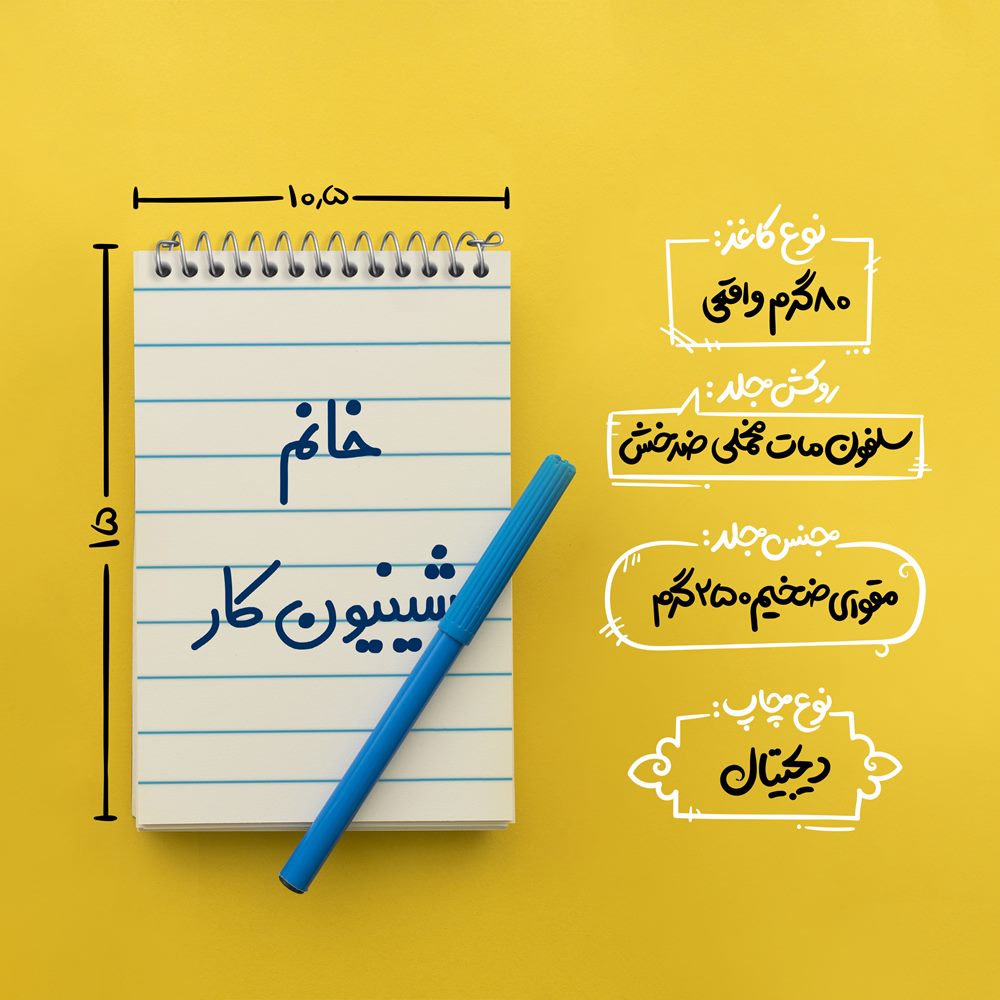 ۱۰٫۵
۱۵
خانم
شینیون کار
نوع کاغذ:
۸۰ گرم واقعی
روکش جلد:
سلفون مات مخملی ضدخش
جنس جلد:
مقوای ضخیم ۲۵۰ گرم
نوع چاپ:
دیجیتال